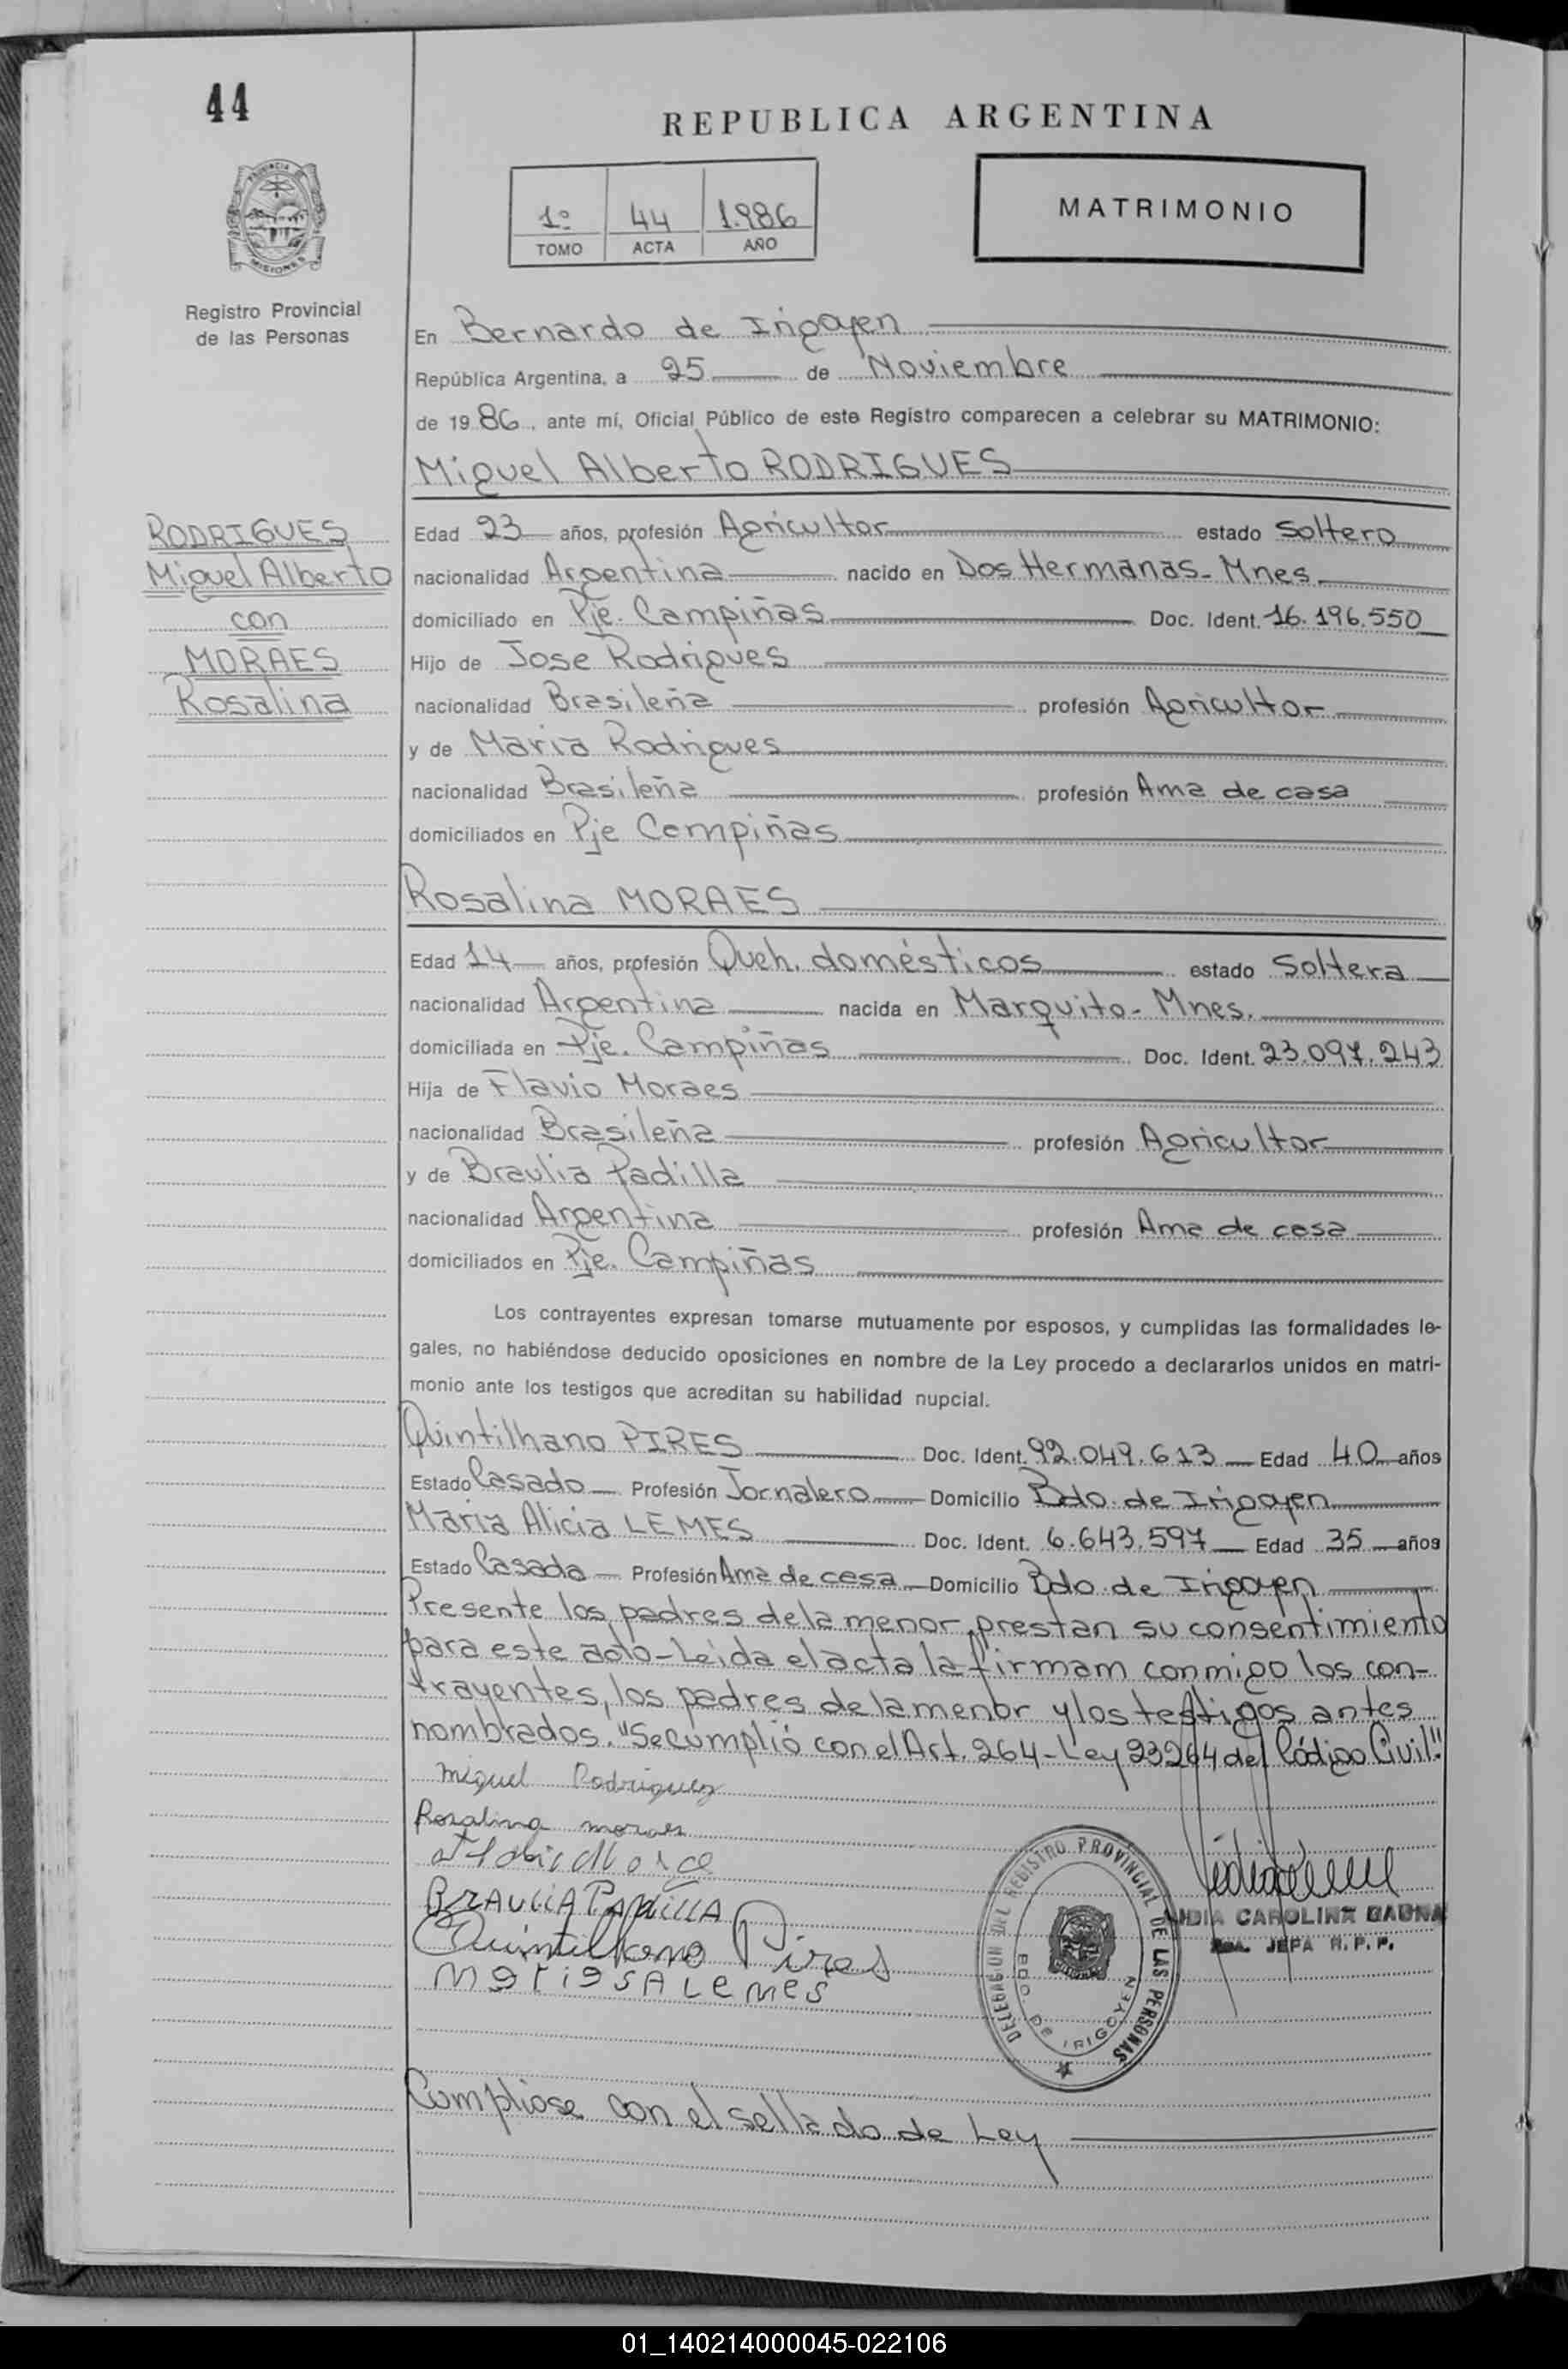 44
REPUBLICA ARGENTINA
PROVINCIA DE
MISIONES
1º 44 1.986
TOMO ACTA AÑO
MATRIMONIO
Registro Provincial
de las Personas
En Bernardo de Irigoyen
República Argentina, a 25 de Noviembre
de 1986, ante mí, Oficial Público de este Registro comparecen a celebrar su MATRIMONIO:
Miguel Alberto RODRIGUES
RODRIGUES
Miguel Alberto
con
MORAES
Rosalina
Edad 23 años, profesión Agricultor estado Soltero
nacionalidad Argentina nacido en Dos Hermanas - Mnes.
domiciliado en Pje. Campiñas Doc. Ident. 16.196.550
Hijo de Jose Rodrigues
nacionalidad Brasileña profesión Agricultor
y de Maria Rodrigues
nacionalidad Brasileña profesión Ama de casa
domiciliados en Pje Campiñas
Rosalina MORAES
Edad 14 años, profesión Queh. domésticos estado Soltera
nacionalidad Argentina nacida en Marquito - Mnes.
domiciliada en Pje. Campiñas Doc. Ident. 23.097.243
Hija de Flavio Moraes
nacionalidad Brasileña profesión Agricultor
y de Braulia Padilla
nacionalidad Argentina profesión Ama de casa
domiciliados en Pje. Campiñas
Los contrayentes expresan tomarse mutuamente por esposos, y cumplidas las formalidades le-
gales, no habiéndose deducido oposiciones en nombre de la Ley procedo a declararlos unidos en matri-
monio ante los testigos que acreditan su habilidad nupcial.
Quintilhano PIRES Doc. Ident. 92.049.613 Edad 40 años
Estado Casado Profesión Jornalero Domicilio Bdo. de Irigoyen
Maria Alicia LEMES Doc. Ident. 6.643.597 Edad 35 años
Estado Casada Profesión Ama de casa Domicilio Bdo. de Irigoyen
Presente los padres de la menor prestan su consentimiento
para este acto - Leida el acta la firmam conmigo los con-
trayentes, los padres de la menor y los testigos antes
nombrados. "Se cumplió con el Art. 264 - Ley 23264 del Código Civil."
Miguel Rodriguez
Rosalina moraes
BRAULIA PADILLA
Quintilhano Pires
MariasALemes
DELEGACION DEL REGISTRO PROVINCIAL DE LAS PERSONAS
BDO. DE IRIGOYEN
LIDIA CAROLINA GAUNA
JEFA R.P.P.
Cumpliose con el sellado de Ley
01_140214000045-022106